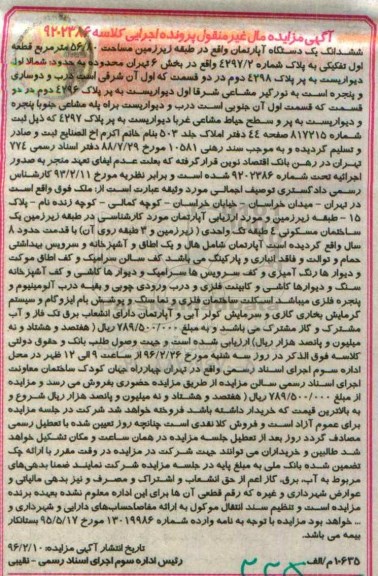 آگهی مزایده مال غیر منقول پرونده اجرایی کلاسه ۹۲۰۲۳۸۶
ششدانگ یک دستگاه آپارتمان واقع در طبقه زیرزمین مساحت ۵۶/۸۰ مترمربع قطعه
اول تفکیکی به پلاک شماره ۴۲۹۷/۲ واقع در بخش ۶ تهران محدوده به حدود: شمالا اول
دیواریست به پر پلاک ۴۲۹۸ دوم در دو قسمت که اول آن شرقی است درب و دوساری
و پنجره است به نورگیر مشاعی شرقا اول دیواریست به پر پلاک ۴۲۹۶ دوم در دو
قسمت که قسمت اول آن جنوبی است درب و دیواریست براه پله مشاعی جنوبا پنجره
و دیواریست به پر و سطح حیاط مشاعی غربا دیواریست به پر پلاک ۴۲۹۷ که ذیل ثبت
شماره ۸۱۷۲۱۵ صفحه ۴۴ دفتر املاک جلد ۵۰۳ بنام خانم اکرم اخ الصنایع ثبت و صادر
و تسلیم گردیده و به موجب سند رهنی ۱۰۵۸۱ مورخ ۸۸/۷/۲۹ دفتر اسناد رسمی ۷۷۴
تهران در رهن بانک اقتصاد نوین قرار گرفته که بعلت عدم ایفای تعهد منجر به صدور
اجرائیه تحت شماره ۹۲۰۲۳۸۶ شده است و برابر نظریه مورخ ۹۳/۲/۱۱ کارشناس
رسمی دادگستری توصیف اجمالی مورد وثیقه عبارت است از: ملک فوق واقع است
در تهران - میدان خراسان - خیابان خراسان - کوچه کمالی - کوچه زنده نام - پلاک
۱۵ - طبقه زیرزمین و مورد ارزیابی آپارتمان مورد کارشناسی در طبقه زیرزمین یک
ساختمان مسکونی ۴ طبقه تک واحدی ( زیرزمین و ۳ طبقه روی آن) با قدمت حدود ۸
سال واقع گردیده است آپارتمان شامل هال و یک اطاق و آشپزخانه و سرویس بهداشتی
حمام و توالت و فاقد انباری و پارکینگ می باشد. کف سالن سرامیک و کف اطاق موکت
و دیوار ها رنگ آمیزی و کف سرویس ها سرامیک و دیوار ها کاشی و کف آشپزخانه
سنگ و دیوارها کاشی و کابینت فلزی و درب ورودی چوبی و بقیه درب آلومینیوم و
پنجره فلزی میباشد. اسکلت ساختمان فلزی و نما سنگ و پوشش بام ایزوگام و سیستم
گرمایش بخاری گازی و سرمایش کولر آبی و آپارتمان دارای انشعاب برق تک فاز و آب
مشترک و گاز مشترک می باشد. و به مبلغ ۷۸۹/۵۰۰/۰۰۰ ریال ( هفتصد و هشتاد و نه
میلیون و پانصد هزار ریال) ارزیابی شده است و جهت وصول طلب بانک و حقوق دولتی
کلاسه فوق الذکر در روز سه شنبه مورخ ۹۶/۲/۲۶ از ساعت ۹ الی ۱۲ ظهر در محل
اداره سوم اجرای اسناد رسمی واقع در تهران چهارراه جهان کودک ساختمان معاونت
اجرای اسناد رسمی سالن مزایده از طریق مزایده حضوری بفروش می رسد و مزایده
از مبلغ ۷۸۹/۵۰۰/۰۰۰ ریال ( هفتصد و هشتاد و نه میلیون و پانصد هزار ریال شروع و
به بالاترین قیمت که خریدار داشته باشد فروخته خواهد شد شرکت در جلسه مزایده
برای عموم آزاد است و فروش کلا نقدی است چنانچه روز تعیین شده با تعطیل رسمی
مصادف گردد روز بعد از تعطیل جلسه مزایده در همان ساعت و مکان تشکیل خواهد
شد طالبین و خریداران می توانند جهت شرکت در مزایده در وقت مقرر با ارائه چک
تضمین شده بانک ملی به مبلغ پایه در جلسه مزایده شرکت نمایند ضمنا بدهی‌های
مربوط به آب، برق، گاز اعم از حق انشعاب و اشتراک و مصرف و نیز بدهی مالیاتی و
عوارض شهرداری و غیره که رقم قطعی آن ها برای این اداره معلوم نشده بعهده برنده
مزایده است و تنظیم سند انتقال موکول به ارائه مفاصاحساب‌های دارایی و شهرداری و
... خواهد بود مزایده با توجه به نامه وارده شماره ۱۳۰۱۹۹۸۶ مورخ ۹۵/۵/۱۷ بستانکار
بیمه می باشد.
تاریخ انتشار آگهی مزایده: ۹۶/۲/۱۰
۱۰۶۳۵/م الف رئیس اداره سوم اجرای اسناد رسمی - نقیبی